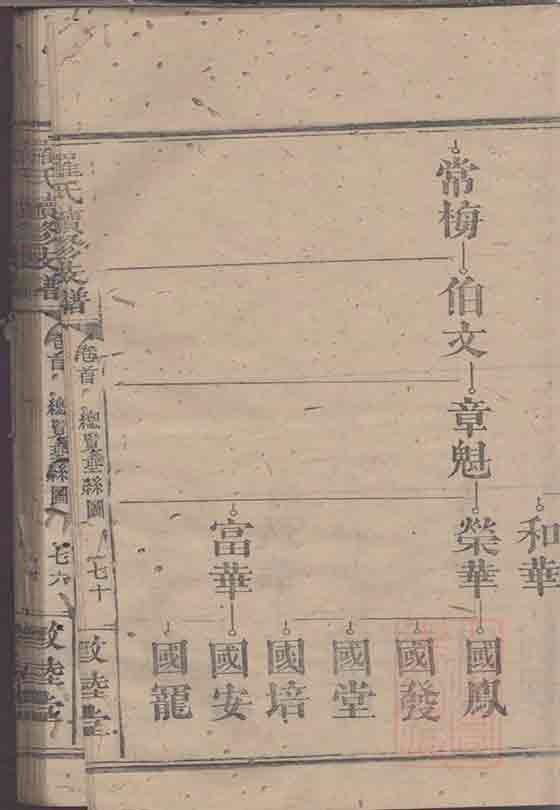 常梅
伯文
章魁
和華
榮華
富華
國鳳
國發
國堂
國培
國安
國龍
羅氏續修支譜
卷首
總覽垂絲圖
七十
敦陸堂
氏續修支譜
卷首
總覽垂絲圖
七六
敦陸堂